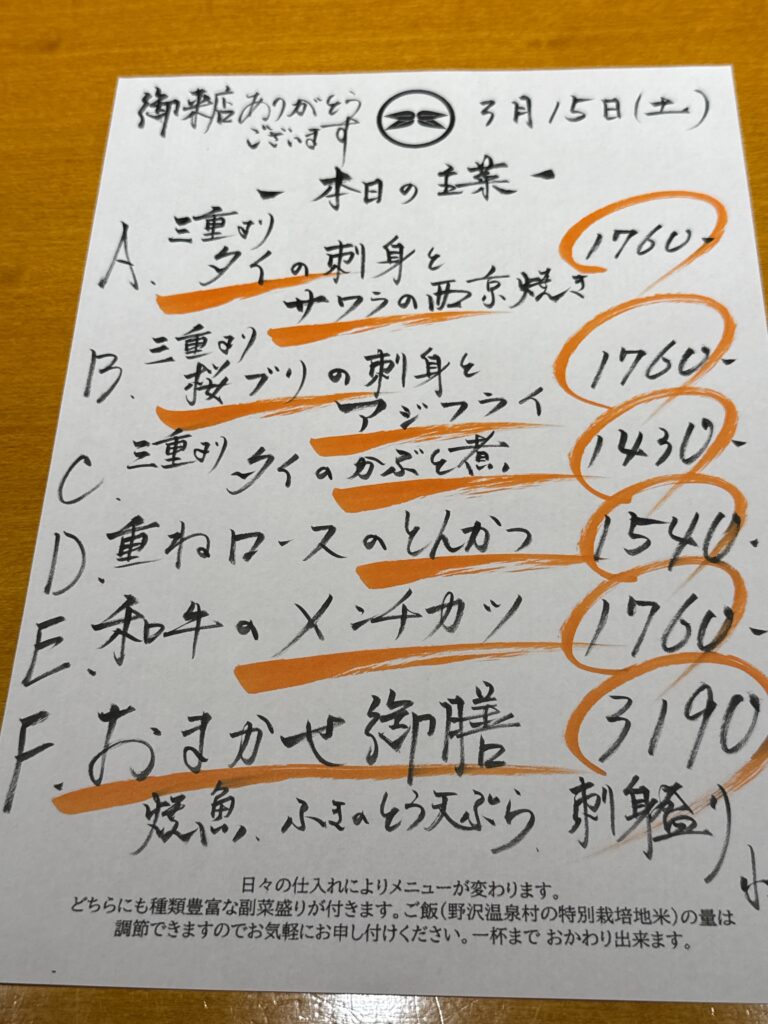 御来店ありがとう
ございます
3月15日(土)
- 本日の主菜 -
A. 三重より
タイの刺身と
サワラの西京焼き
1760-
B. 三重より
桜ブリの刺身と
アジフライ
1760-
C. 三重より
タイのかぶと煮
1430-
D. 重ねロースのとんかつ
1540-
E. 和牛のメンチカツ
1760-
F. おまかせ御膳
3190
焼魚、ふきのとう天ぷら 刺身盛り
日々の仕入れによりメニューが変わります。
どちらにも種類豊富な副菜盛りが付きます。ご飯(野沢温泉村の特別栽培地米)の量は
調節できますのでお気軽にお申し付けください。一杯まで おかわり出来ます。